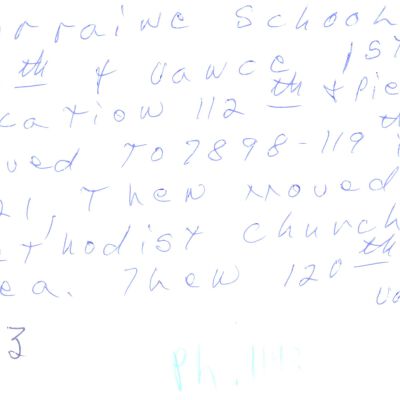 rraine School
th & Vance 1st
cation 112 th & Pie
ved To 7898-119 th
21, Then moved
thodist Church
ea. Then 120 th
va
3